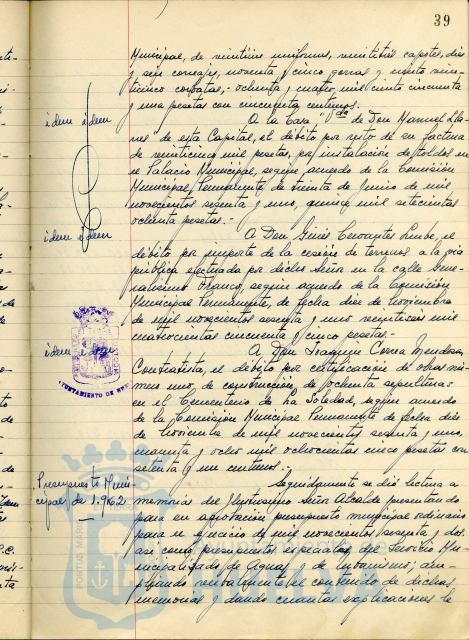 39
Municipal, de veintiún uniformes, veintitrés capotes, diez
y seis correajes, noventa y cinco gorras y ciento vein-
ticinco corbatas, ochenta y cuatro mil ciento cincuenta
y una pesetas con cincuenta centimos.
idem idem
A la Casa "Vda de Don Manuel
de esta Capital, el débito por resto de su factura
de veinticinco mil pesetas, por instalación de toldos en
el Palacio Municipal, según acuerdo de la Comisión
Municipal Permanente de treinta de Junio de mil
novecientos sesenta y uno, quince mil setecientas
ochenta pesetas.-
idem idem
A Don Ginés Cervantes el
débito por importe de la cesión de terrenos a la via
pública efectuada por dicho Señor en la calle Gene-
ralísimo Franco, según acuerdo de la Comisión
Municipal Permanente, de fecha diez de Noviembre
de mil novecientos sesenta y uno veintiseis mil
cuatrocientas cincuenta y cinco pesetas.-
idem idem
A Don Joaquin Correa Mendoza,
Contratista, el débito por certificación de obras nú-
mero uno, de construcción de ochenta sepulturas
en el Cementerio de La Soledad, según acuerdo
de la Comisión Municipal Permanente de fecha diez
de Noviembre de mil novecientos sesenta y uno,
cuarenta y ocho mil ochocientas cinco pesetas con
setenta y un centimos.-
Presupuesto Muni-
cipal de 1.962
Seguidamente se dió lectura a
memorias del Ilustrísimo Señor Alcalde presentando
para su aprobación presupuesto municipal ordinario
para el ejercicio de mil novecientos sesenta y dos
así como presupuestos especiales del Servicio Mu-
nicipalizado de Aguas y de Urbanismo; am-
pliando verbalmente el contenido de dichas
memorias y dando cuantas explicaciones le
AYUNTAMIENTO DE
PORTUS